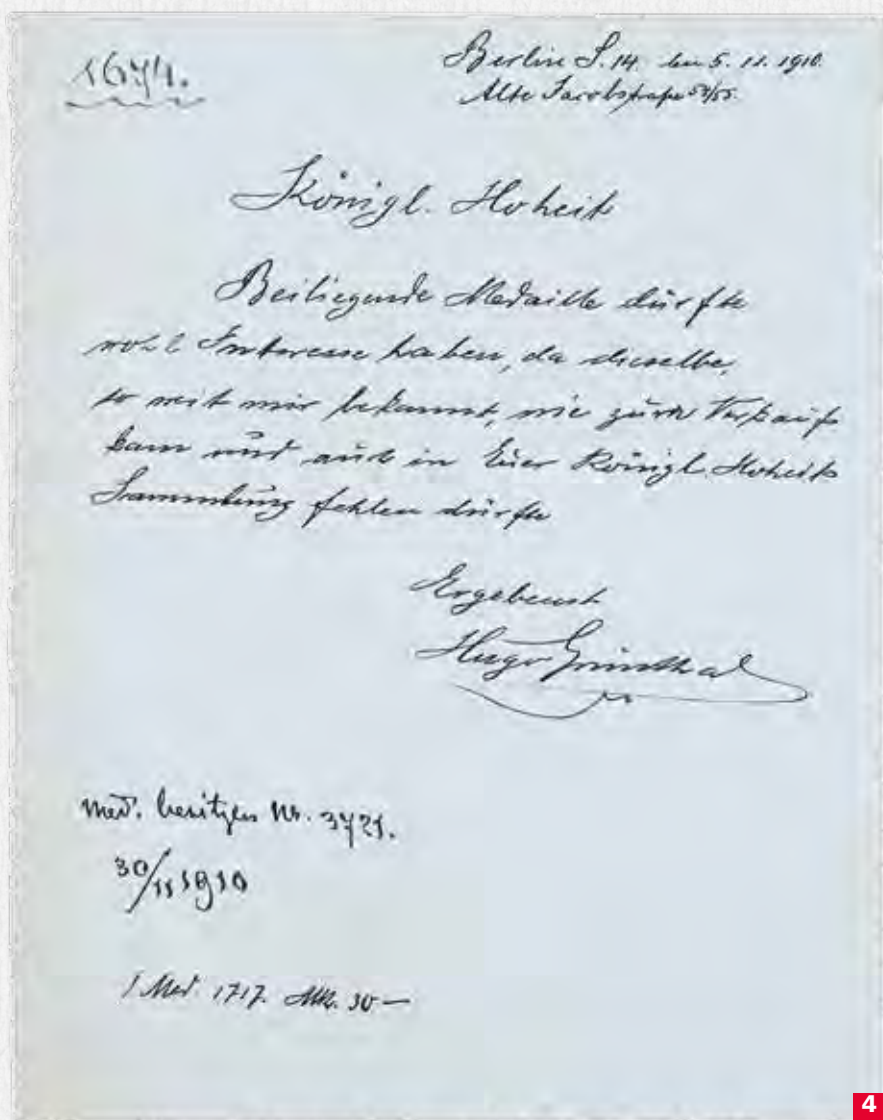 1674.
Berlin S. 14. den 5. 11. 1910.
Alte Jacobstraße
Königl. Hoheit
Beiliegende Medaille dürfte
wohl Interesse haben, da dieselbe,
so weit mir bekannt, nie zum Verkauf
kam und auch in Euer Königl. Hoheit
Sammlung fehlen dürfte
Ergebenst
Hugo Grünthal
med. besitzen Nr. 3721.
30/11 1910
1 Med. 1717. Mk. 30—
4